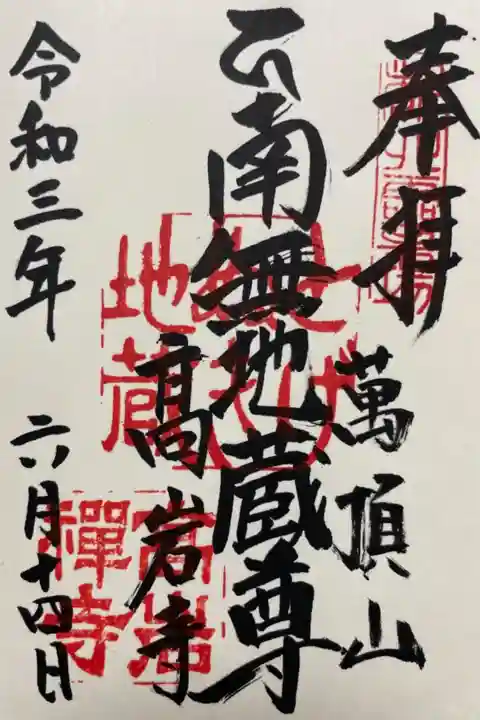 奉拝
萬頂山
南無地蔵尊
髙岩寺
令和三年 六月十四日
地蔵
高岩
禪寺